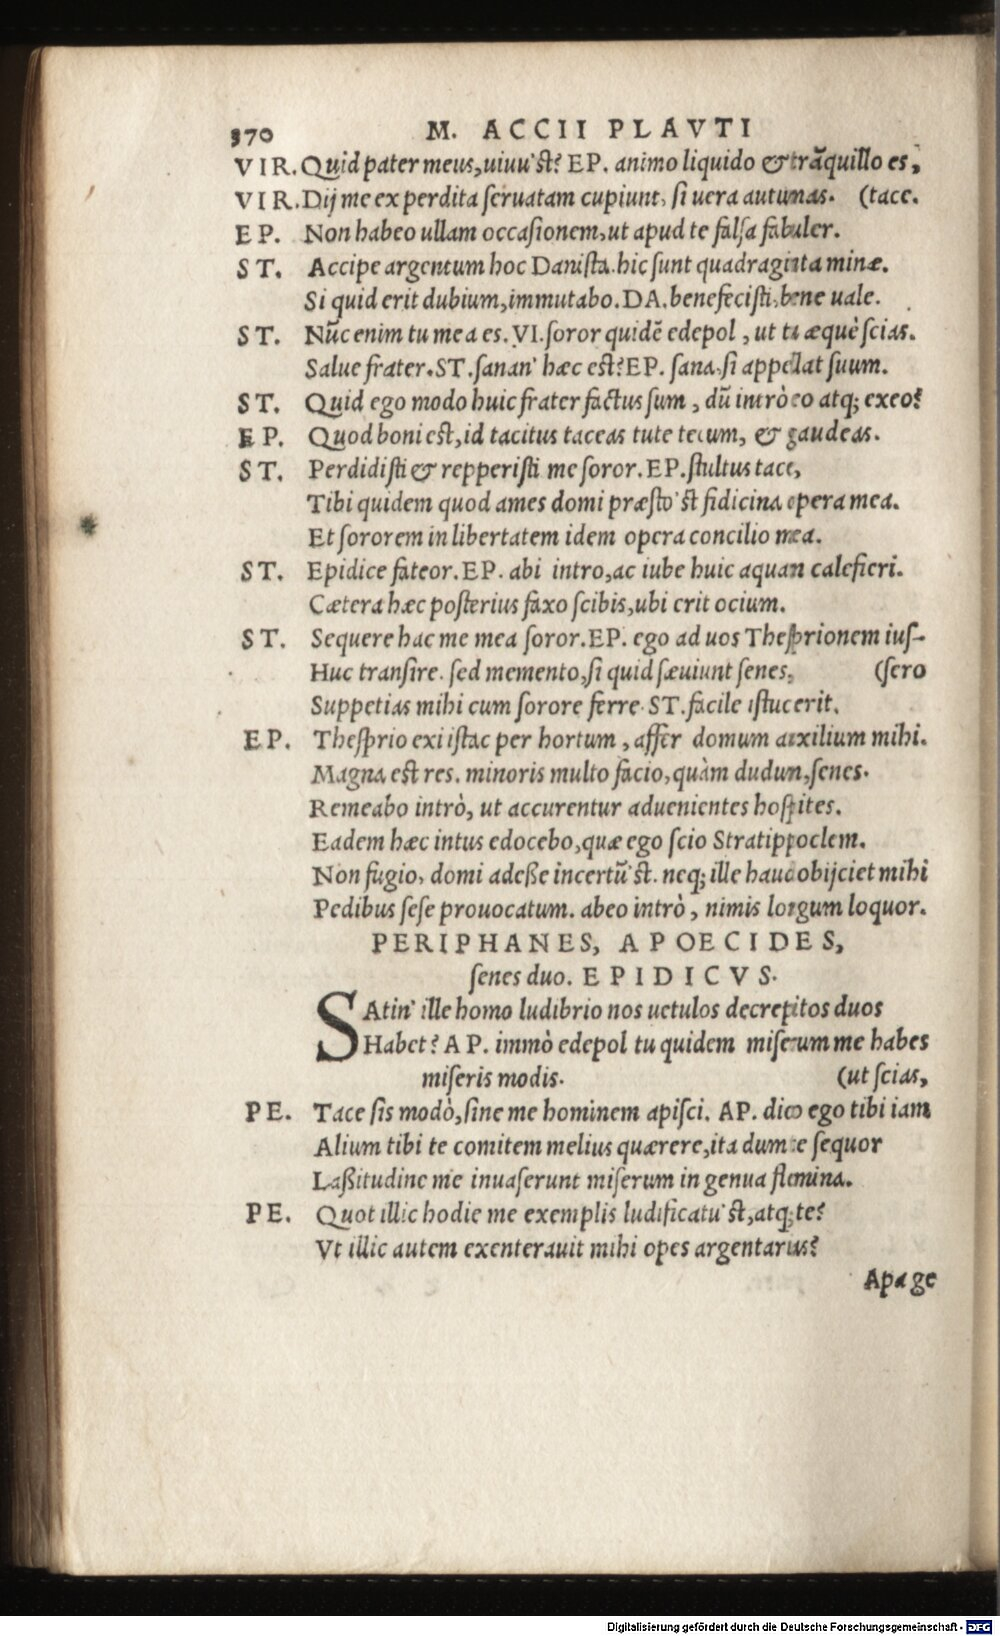 370 M. ACCII PLAVTI
VIR. Quid pater meus, uiuu'st? EP. animo liquido & trãquillo es,
VIR. Dij me ex perdita seruatam cupiunt, si uera autumas. (tace.
EP. Non habeo ullam occasionem, ut apud te falsa fabuler.
ST. Accipe argentum hoc Danista. hic sunt quadraginta minæ.
Si quid erit dubium, immutabo. DA. benefecisti, bene uale.
ST. Nũc enim tu mea es. VI. soror quidẽ edepol, ut tu æquè scias.
Salue frater. ST. sanan' hæc est? EP. sana, si appellat suum.
ST. Quid ego modo huic frater factus sum, dũ intrò eo atq; exeo?
EP. Quod boni est, id tacitus taceas tute tecum, & gaudeas.
ST. Perdidisti & repperisti me soror. EP. stultus tace,
Tibi quidem quod ames domi præsto'st fidicina opera mea.
Et sororem in libertatem idem opera concilio mea.
ST. Epidice fateor. EP. abi intro, ac iube huic aquam calefieri.
Cætera hæc posterius faxo scibis, ubi erit ocium.
ST. Sequere hac me mea soror. EP. ego ad uos Thesprionem ius-
Huc transire. sed memento, si quid sæuiunt senes, (sero
Suppetias mihi cum sorore ferre. ST. facile istuc erit.
EP. Thesprio exi istac per hortum, affer domum auxilium mihi.
Magna est res. minoris multo facio, quàm dudum, senes.
Remeabo intrò, ut accurentur aduenientes hospites.
Eadem hæc intus edocebo, quæ ego scio Stratippoclem.
Non fugio, domi adesse incertũ'st. neq; ille haud obijciet mihi
Pedibus sese prouocatum. abeo intrò, nimis longum loquor.
PERIPHANES, APOECIDES,
senes duo. EPIDICVS.
SAtin' ille homo ludibrio nos uetulos decrepitos duos
Habet? AP. immò edepol tu quidem miserum me habes
miseris modis. (ut scias,
PE. Tace sis modò, sine me hominem apisci. AP. dico ego tibi iam
Alium tibi te comitem melius quærere, ita dum te sequor
Lassitudine me inuaserunt miserum in genua flemina.
PE. Quot illic hodie me exemplis ludificatu'st, atq; te?
Vt illic autem exenterauit mihi opes argentarias?
Apage
Digitalisierung gefördert durch die Deutsche Forschungsgemeinschaft - DFG